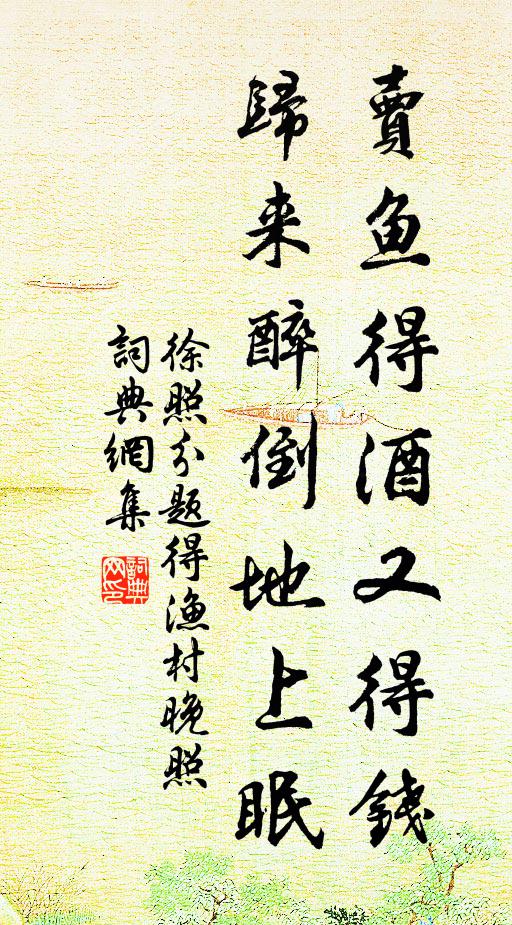 賣魚得酒又得錢
歸来醉倒地上眠
徐照分題得漁村晚照
詞典網集
詞典
网印